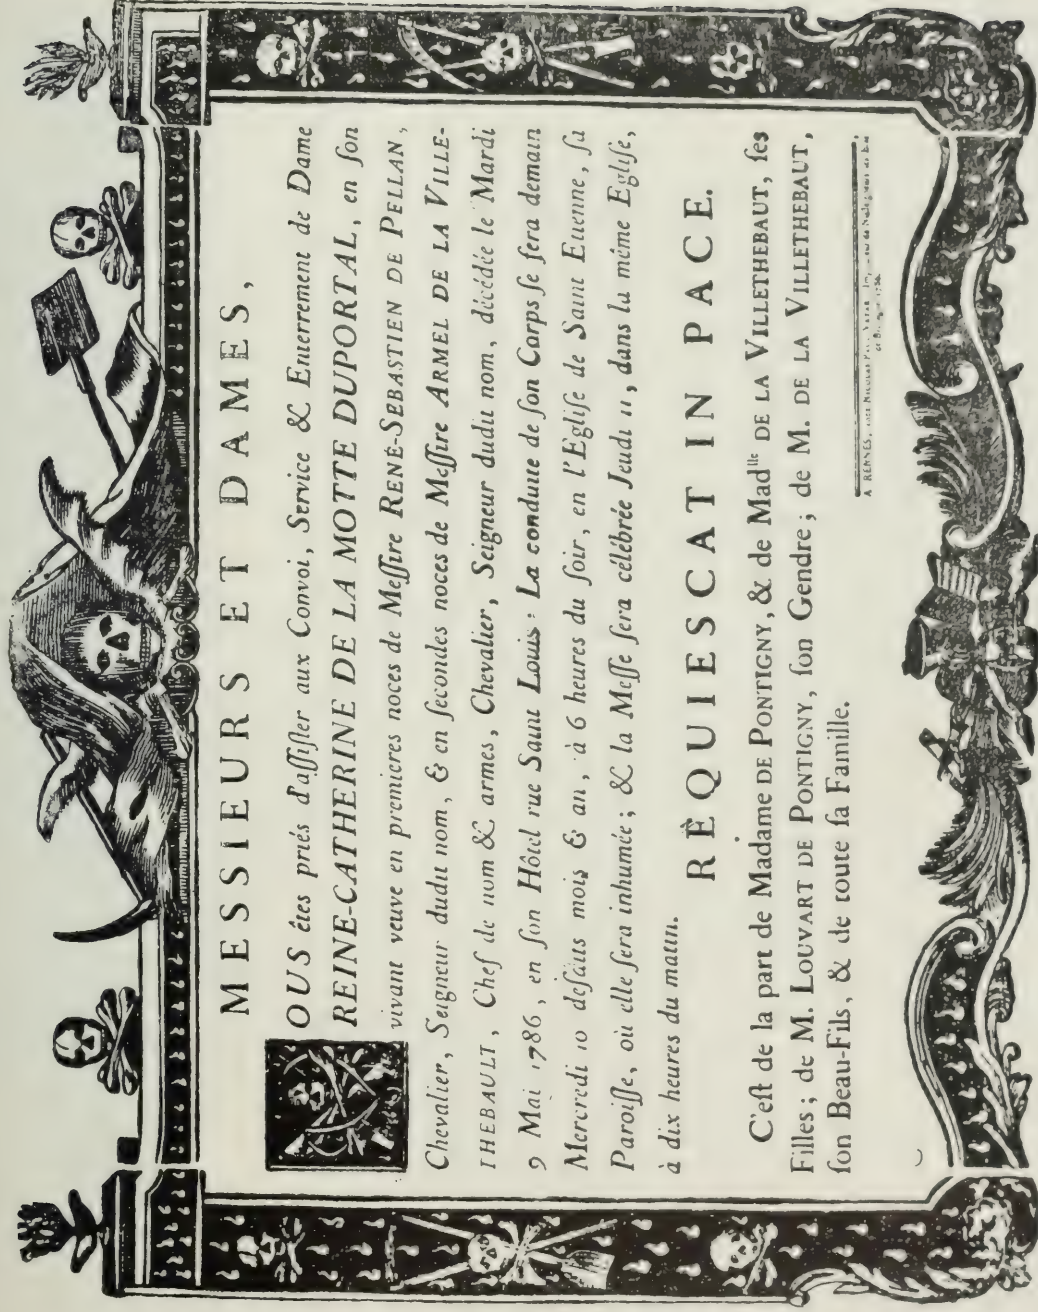 MESSIEURS ET DAMES,
VOUS êtes priés d'aſſiſter aux Convoi, Service & Enterrement de Dame
REINE-CATHERINE DE LA MOTTE DUPORTAL, en ſon
vivant veuve en premieres noces de Meſſire RENÉ-SEBASTIEN DE PELLAN,
Chevalier, Seigneur dudit nom, & en ſecondes noces de Meſſire ARMEL DE LA VILLE-
THEBAULT, Chef de nom & armes, Chevalier, Seigneur dudit nom, décédée le Mardi
9 Mai 1786, en ſon Hôtel rue Saint Louis: La conduite de ſon Corps ſe fera demain
Mercredi 10 deſdits mois & an, à 6 heures du ſoir, en l'Egliſe de Saint Etienne, ſa
Paroiſſe, où elle ſera inhumée; & la Meſſe ſera célébrée Jeudi 11, dans la même Egliſe,
à dix heures du matin.
RÈQUIESCAT IN PACE.
C'eſt de la part de Madame DE PONTIGNY, & de Mad.lle DE LA VILLETHEBAUT, ſes
Filles; de M. LOUVART DE PONTIGNY, ſon Gendre; de M. DE LA VILLETHEBAUT,
ſon Beau-Fils, & de toute ſa Famille.
A RENNES, chez NICOLAS